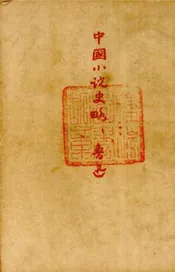 中國小说史略、魯迅